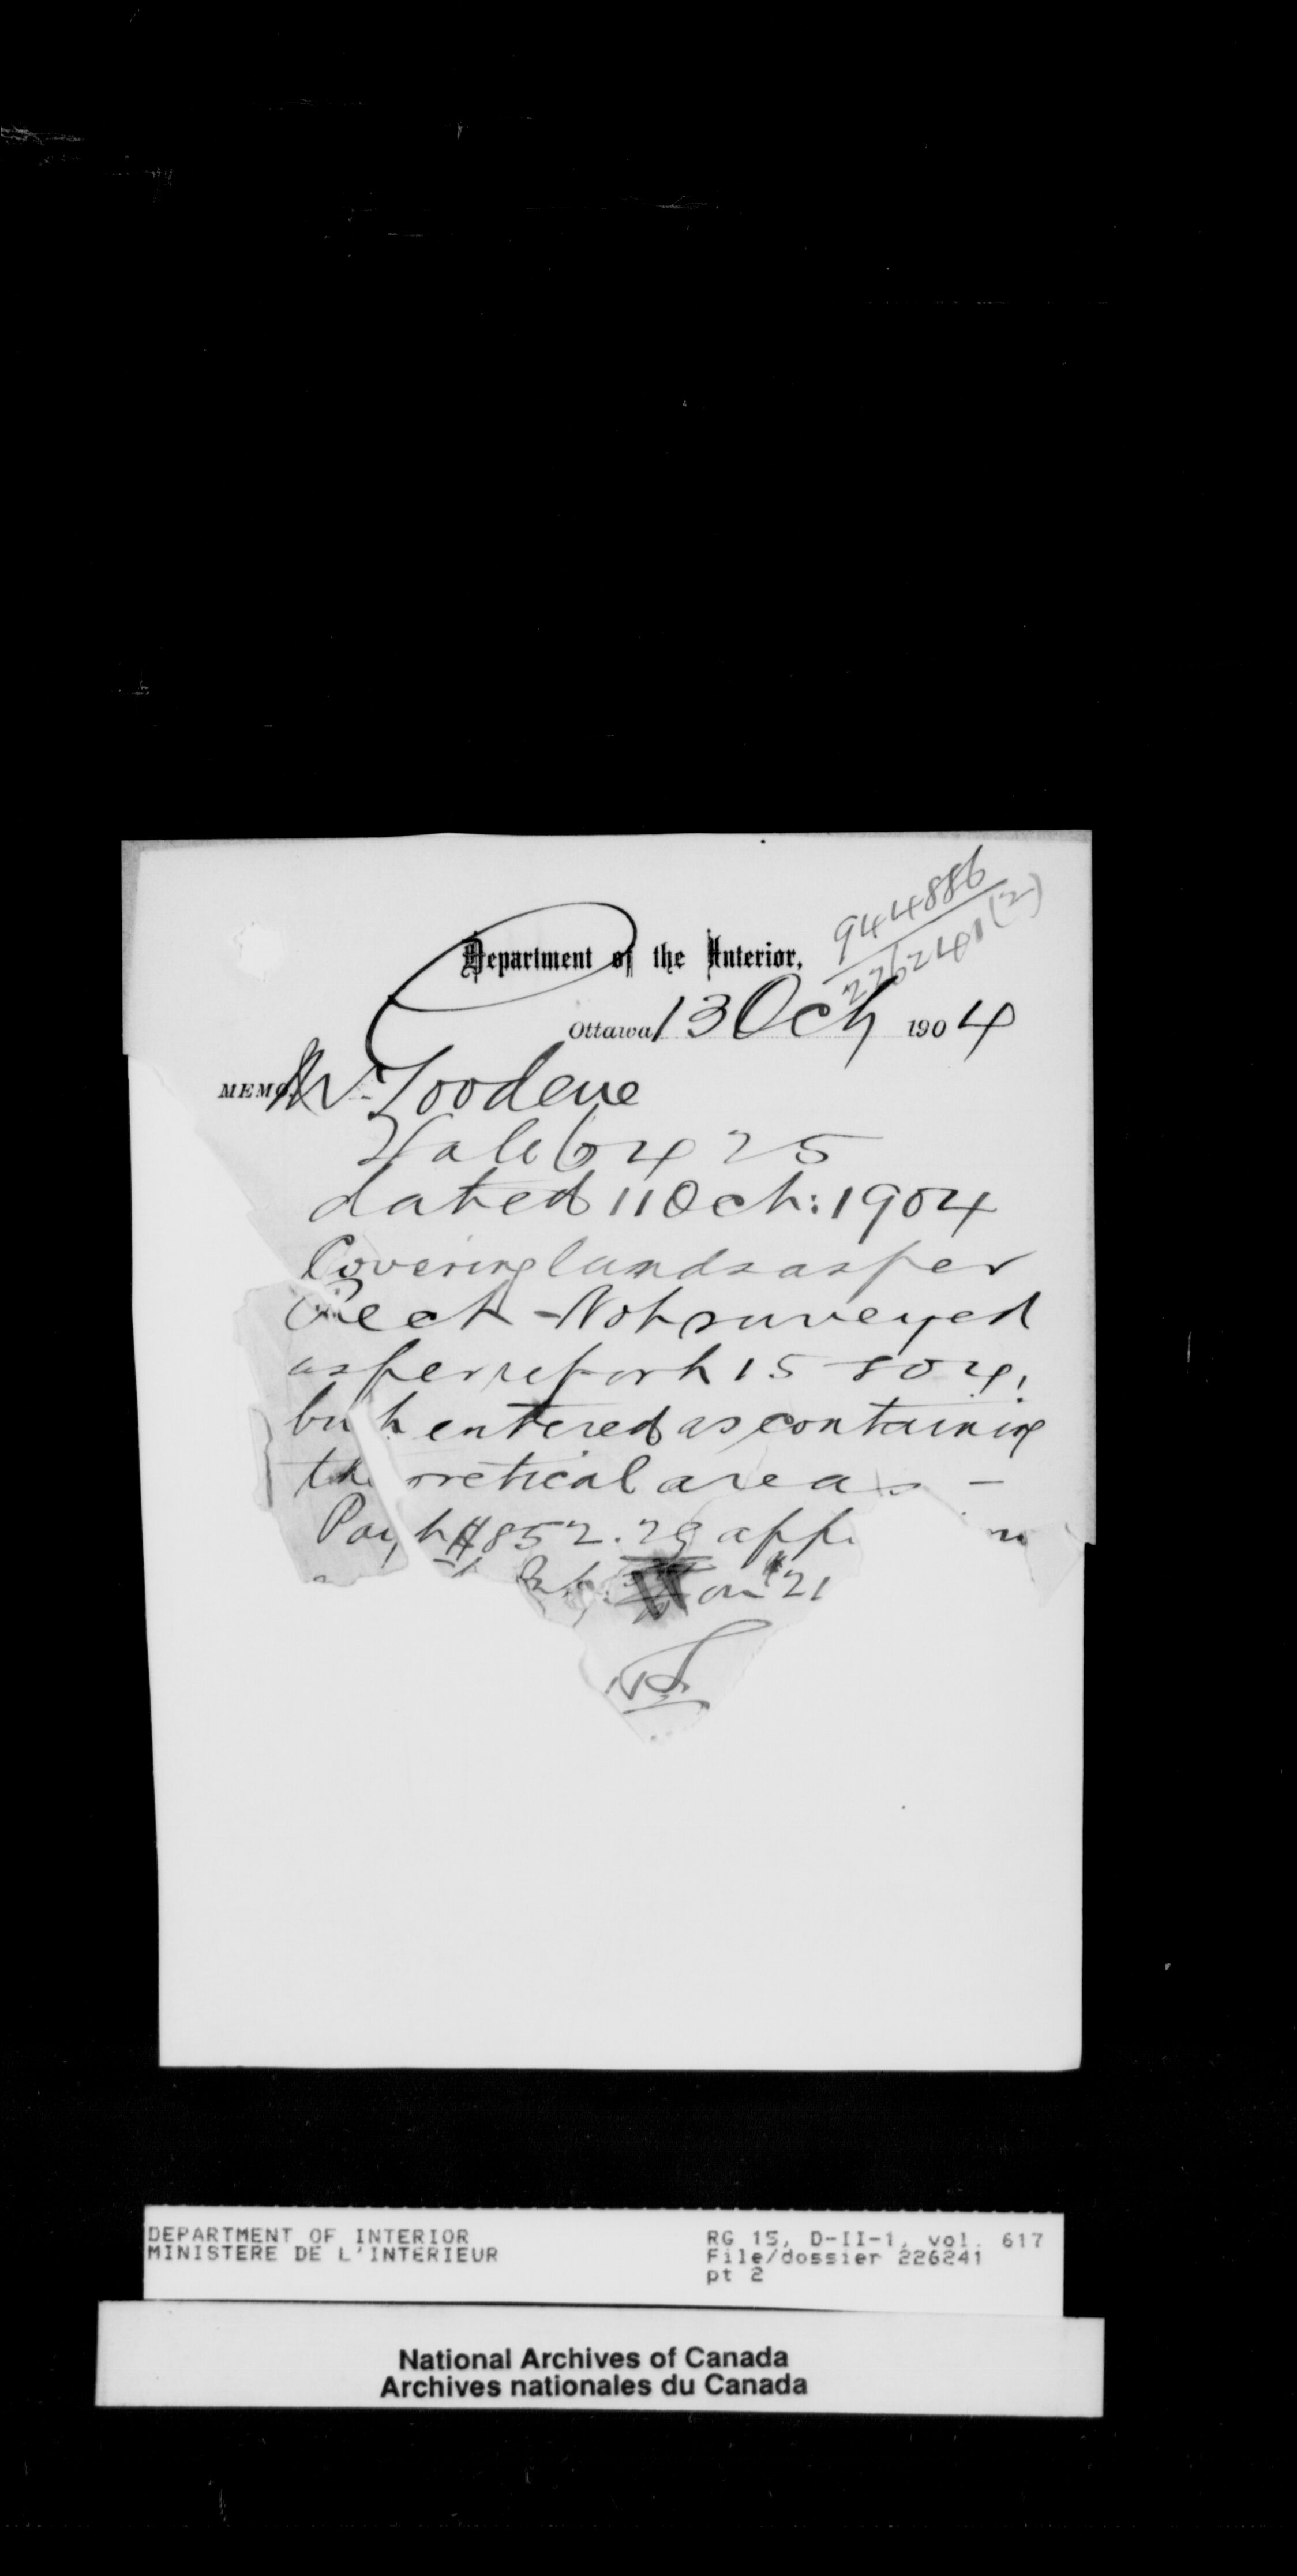 944886
226241(2)
Department of the Interior,
Ottawa 13 Oct 1904
MEMO. Mr.
Sale 6425
dated 11 Oct: 1904
Covering lands as per
Rect - Not surveyed
as per report 15-804!
but entered as containing
theoretical areas -
Payt $852.29
on #21
DEPARTMENT OF INTERIOR
MINISTERE DE L'INTERIEUR
RG 15, D-II-1, vol. 617
File/dossier 226241
pt 2
National Archives of Canada
Archives nationales du Canada